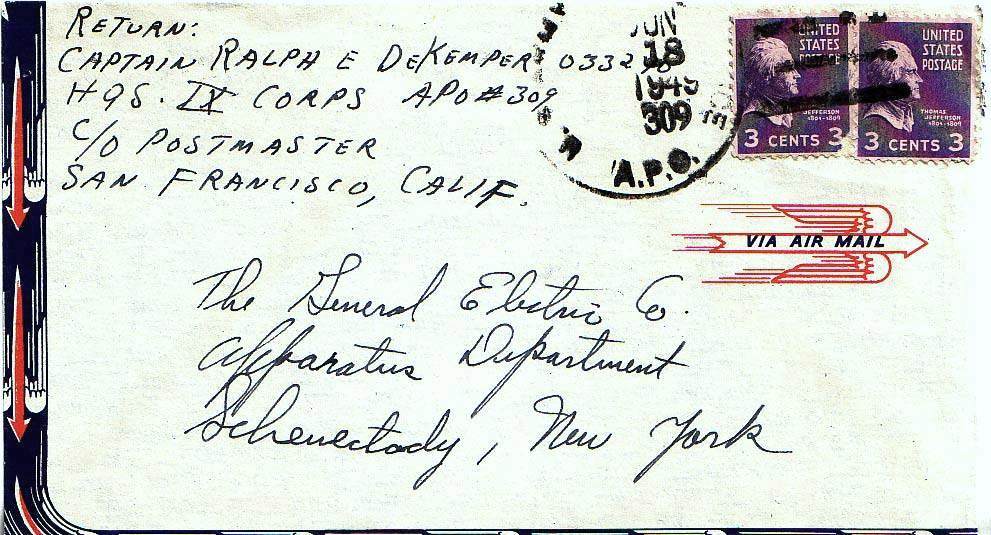 RETURN:
CAPTAIN RALPH E DEKEMPER
HQS. IX CORPS APO # 309
C/O POSTMASTER
SAN FRANCISCO, CALIF.
JUN
18
1945
309
A.P.O.
UNITED
STATES
POSTAGE
3 CENTS 3
UNITED
STATES
POSTAGE
THOMAS
JEFFERSON
1801-1809
3 CENTS 3
VIA AIR MAIL
The General Electric Co.
Apparatus Department
Schenectady, New York